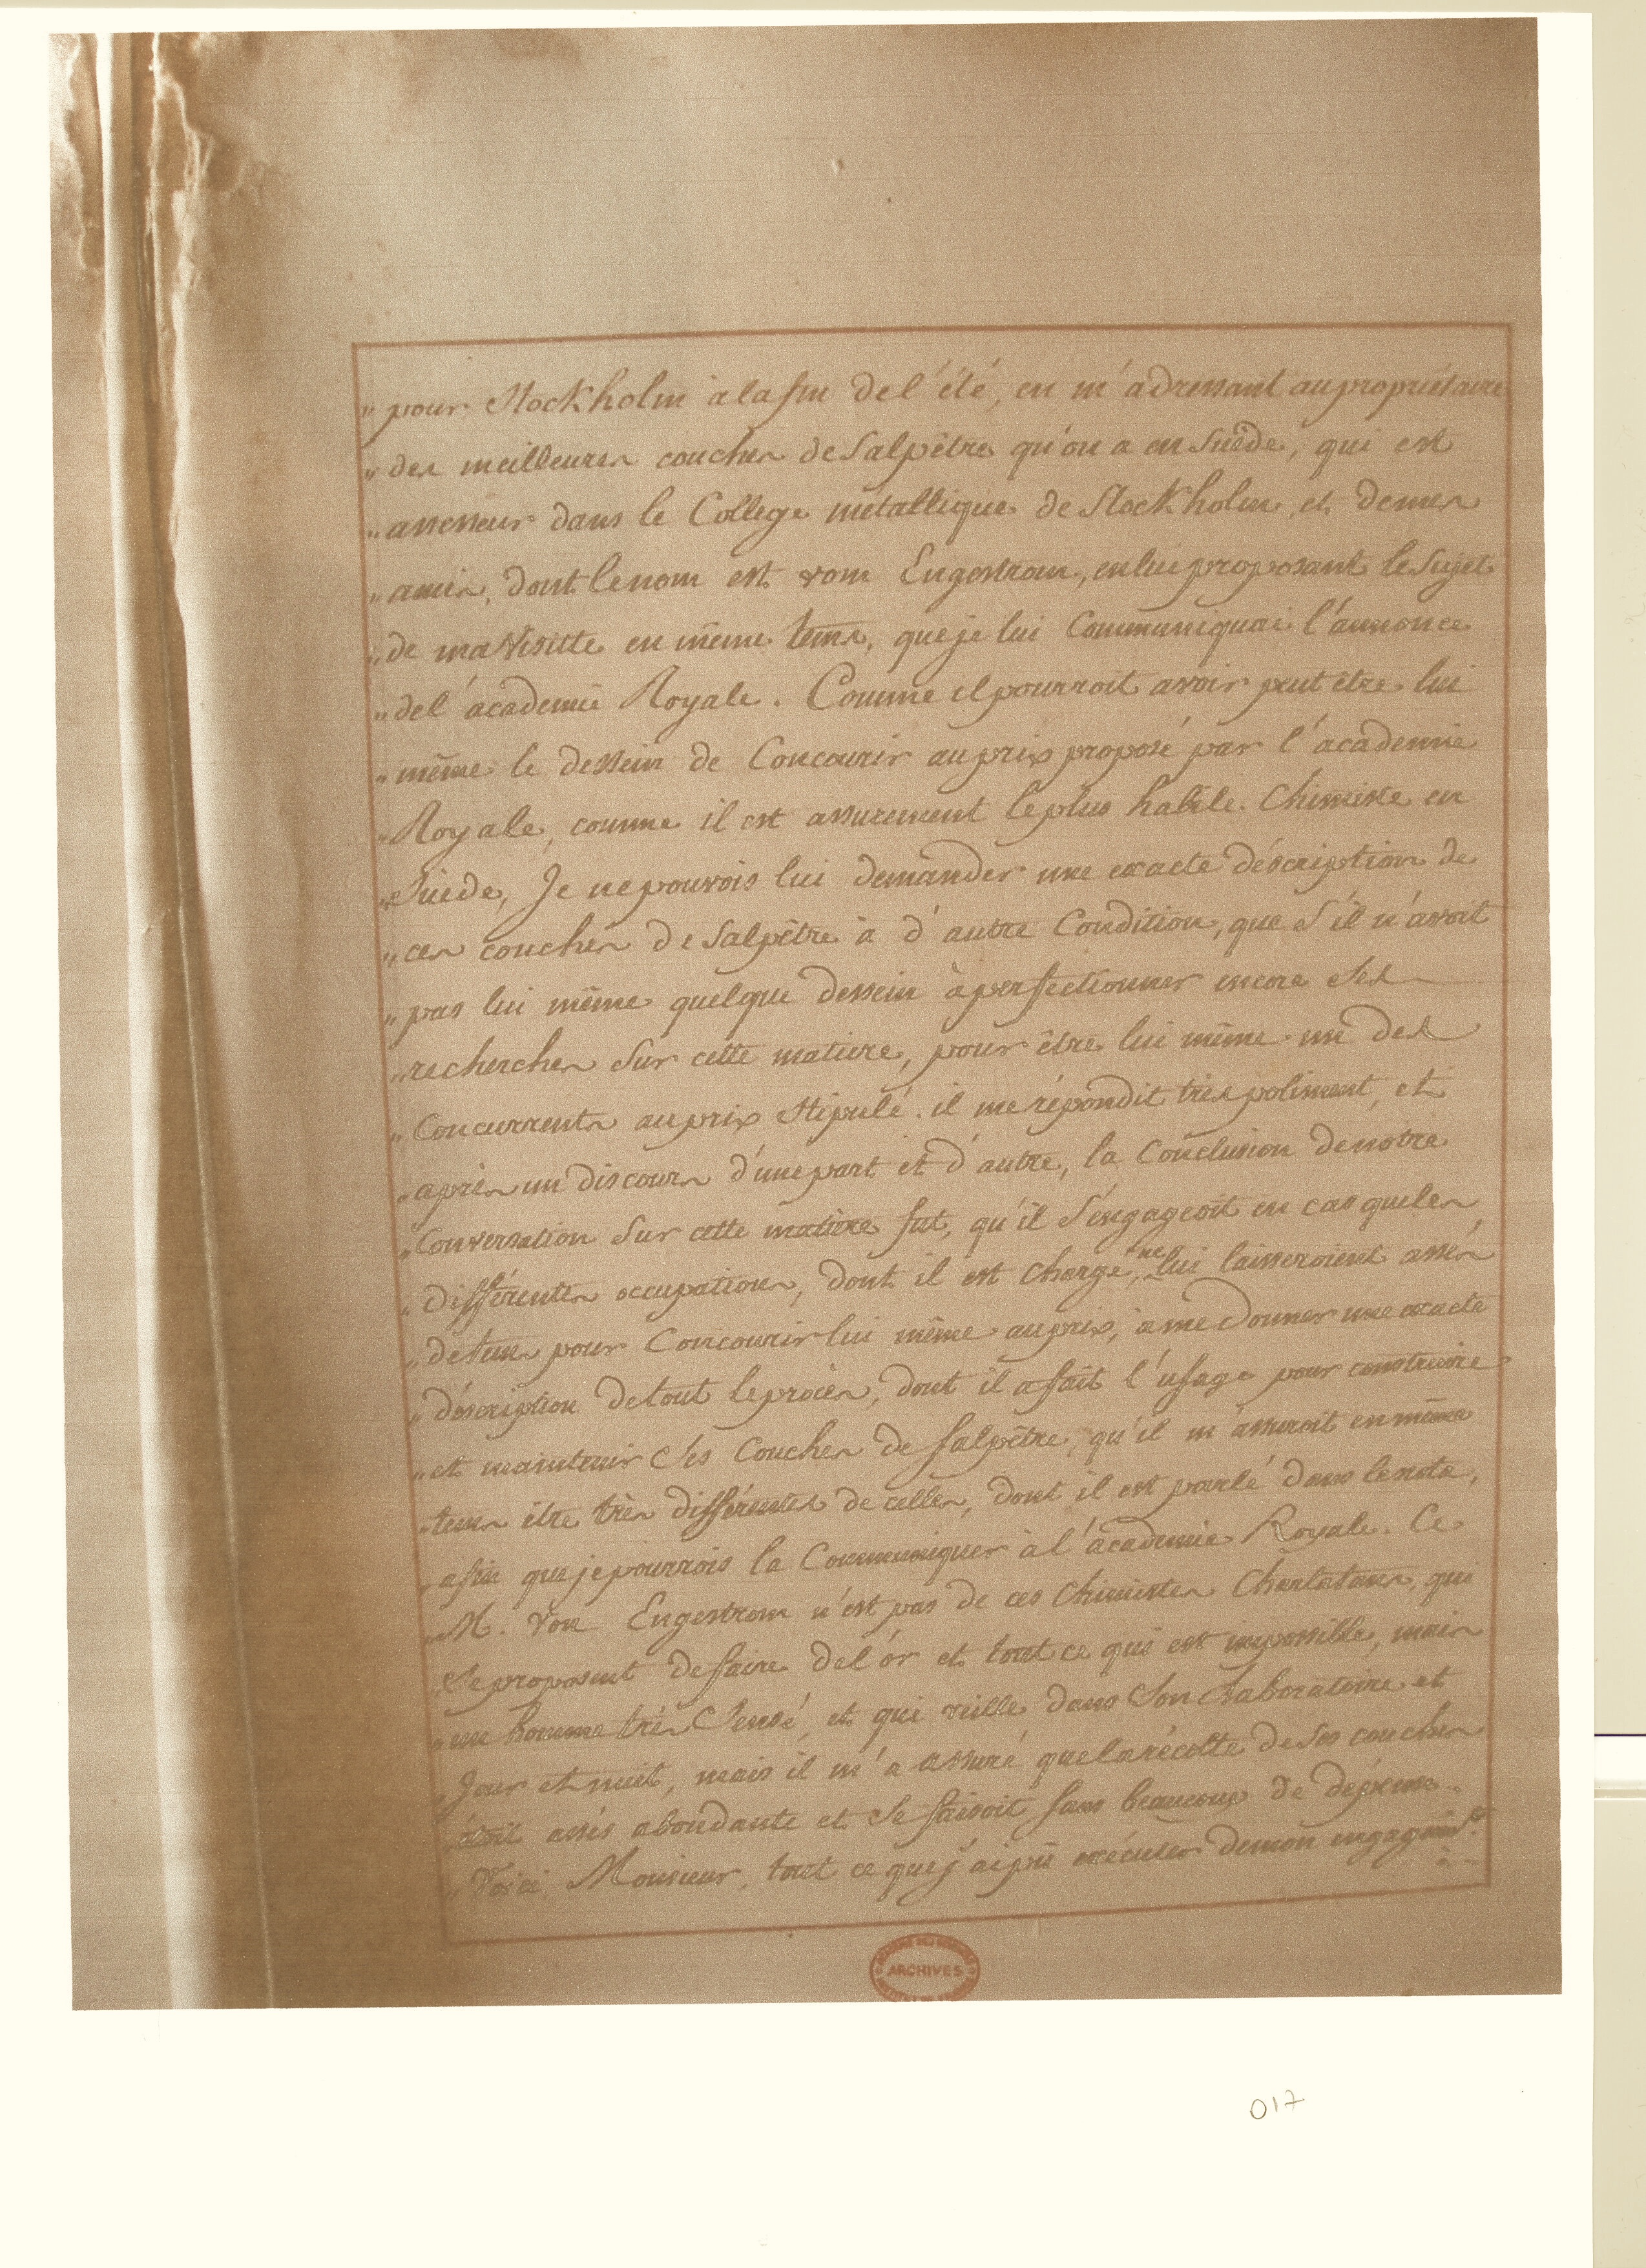 „ pour Stockholm à la fin de l'été, en m'adressant au propriétaire
„ des meilleures couches de Salpêtre qu'on a en Suède, qui est
„ assesseur dans le College métallique de Stockholm et de mes
„ amis, dont le nom est vom Engestrom, en lui proposant le Sujet
„ de ma Visitte en même tems, que je lui Communiquai l'annonce
„ de l'académie Royale. Comme il pourroit avoir peut être lui
„ même le dessein de Concourir au prix proposé par l'academie
„ Royale, comme il est assurement le plus habile Chimiste en
„ Suède, Je ne pouvois lui demander une exacte déscription de
„ ces couches de Salpêtre à d'autre Condition, que S'il n'avoit
„ pas lui même quelque dessein à perfectionner encore Ses
„ recherches Sur cette matiere, pour être lui même un des
„ Concurrents au prix Stipulé. il me répondit très poliment, et
„ après un discours d'une part et d'autre, la Conclusion de notre
„ Conversation Sur cette matiere fut, qu'il S'engageoit en cas que les
„ différentes occupations, dont il est Chargé, ne lui laisseroient assés
„ de tems pour Concourir lui même au prix, à me donner une exacte
„ déscription de tout le procès, dont il a fait l'usage pour construire
„ et maintenir Ses Couches de Salpêtre, qu'il m'assuroit en même
„ tems être très différentes de celles, dont il est parlé dans le nota,
„ afin que je pourrois la Communiquer à l'académie Royale. Ce
„ M. Von Engestrom n'est pas de ces Chimistes Charlatans, qui
„ Se proposent de faire de l'or et tout ce qui est impossible, mais
„ un homme très Sensé, et qui veille dans Son Laboratoire et
„ Jour et nuit, mais il m'a assuré que la récolte de Ses couches
„ étoit assés abondante et Se faisoit sans beaucoup de dépense.
„ Voici, Monsieur, tout ce que j'ai pû exécuter de mon engagemt.
ARCHIVES
017